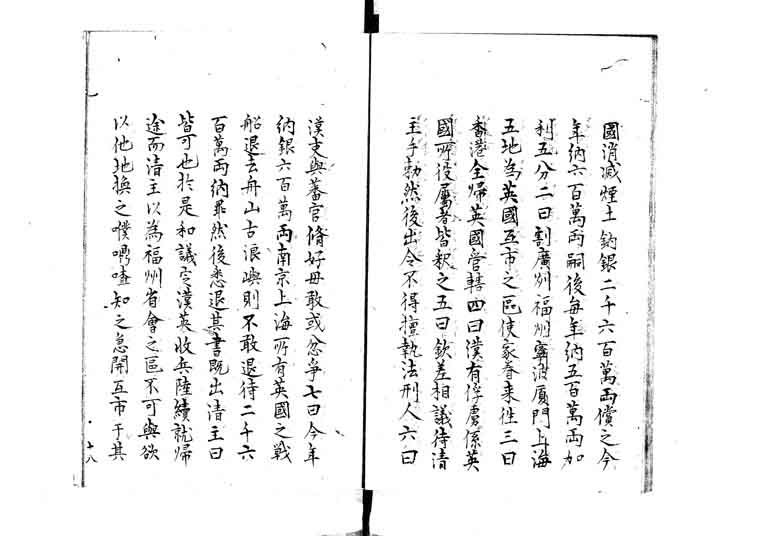 國消滅煙土鈉銀二千六百萬両償之今
年納六百萬両嗣後每年納五百萬両加
利五分二曰割廣州福州寧波厦門上海
五地為英國互市之區使家眷来徃三曰
香港全歸英國管轄四曰漢有俘虜係英
國所役屬者皆釈之五曰欽差相議待清
主手勅然後出令不得擅執法刑人六曰
漢吏與蕃官脩好毋敢或忿爭七曰今年
納銀六百萬両南京上海所有英國之戦
船退去舟山古浪嶼則不敢退待二千六
百萬両納畢然後悉退其書既出清主曰
皆可也於是和議定漢英收兵陸續就歸
途而清主以為福州省會之區不可與欲
以他地換之噗嘀喳知之急開互市于其
十八